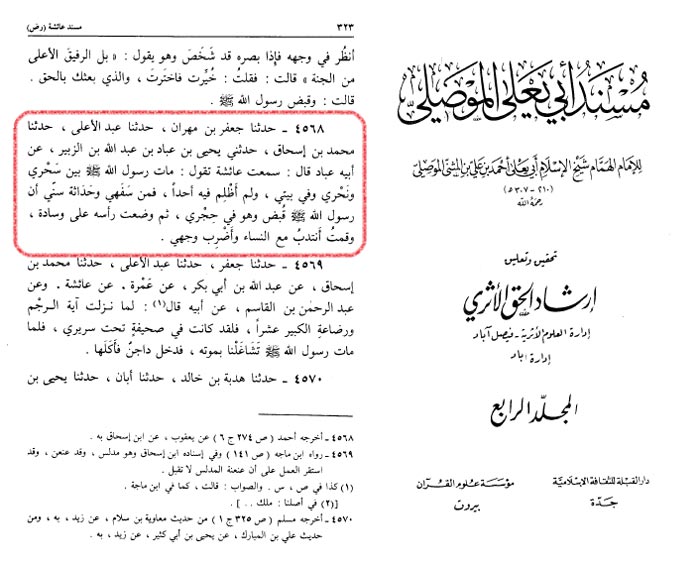 مُسْنَدُ أَبِي يَعْلَى المَوْصِلِي
للإمام الهمام شيخ الإسلام أبي يعلى أحمد بن علي بن المثنى الموصلي
(٢١٠ - ٣٠٧ ه)
رحمه الله
تحقيق وتعليق
إرشاد الحق الأثري
إدارة العلوم الأثرية - فيصل آباد
إدارة اباد
المجلد الرابع
دار القبلة للثقافة الإسلامية
جدة
مؤسسة علوم القرآن
بيروت
٣٢٣
مسند عائشة (رض)
أنظُر في وجهه فإذا بصره قد شَخَصَ وهو يقول : « بل الرفيق الأعلى
من الجنة » قالت : فقلتُ : خُيِّرت فاخترتَ ، والذي بعثك بالحق .
قالت : وقبض رسول الله ﷺ .
٤٥٦٨ ـ حدثنا جعفر بن مهران ، حدثنا عبد الأعلى ، حدثنا
محمد بن إسحاق ، حدثني يحيى بن عباد بن عبد الله بن الزبير ، عن
أبيه عباد قال : سمعت عائشة تقول : مات رسول الله ﷺ بين سَحْري
ونَحْري وفي بيتي ، ولم أَظْلِم فيه أحداً ، فمن سَفَهي وحَدَاثة سنّي أن
رسول الله ﷺ قُبض وهو في حِجْري ، ثم وضعت رأسه على وسادة ،
وقمتُ أَنتدبُ مع النساء وأَضْرِب وجهي .
٤٥٦٩ ـ حدثنا جعفر ، حدثنا عبد الأعلى ، حدثنا محمد بن
إسحاق ، عن عبد الله بن أبي بكر ، عن عَمْرة . عن عائشة . وعن
عبد الرحمٰن بن القاسم ، عن أبيه قال(١) : لما نزلت آية الرجْم
ورضاعةِ الكبير عشراً ، فلقد كانت في صحيفةٍ تحت سريري ، فلما
مات رسول الله ﷺ تَشَاغَلْنا بموته ، فدخل داجنٌ فأَكَلَها .
٤٥٧٠ ـ حدثنا هدبة بن خالد ، حدثنا أبان ، حدثنا يحيى بن
٤٥٦٨ ـ أخرجه أحمد ( ص ٢٧٤ ج ٦ ) عن يعقوب ، عن ابن إسحاق به .
٤٥٦٩ ـ رواه ابن ماجه ( ص ١٤١ ) وفي إسناده ابن إسحاق وهو مدلس ، وقد عنعن ، وقد
استقر العمل على أن عنعنة المدلس لا تقبل .
(١) كذا في ص ، س . والصواب : قالت ، كما في ابن ماجة .
[(٢) في أصلنا : ملك .. ] .
٤٥٧٠ ـ أخرجه مسلم ( ص ٣٢٥ ج ١ ) من حديث معاوية بن سلام ، عن زيد ، به ، ومن
حديث علي بن المبارك ، عن يحيى بن أبي كثير ، عن زيد ، به .